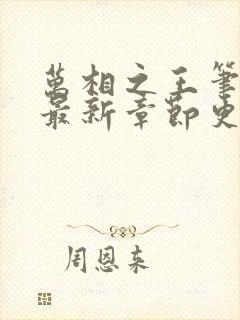 萬相之王筆
最新章節史
周恩来